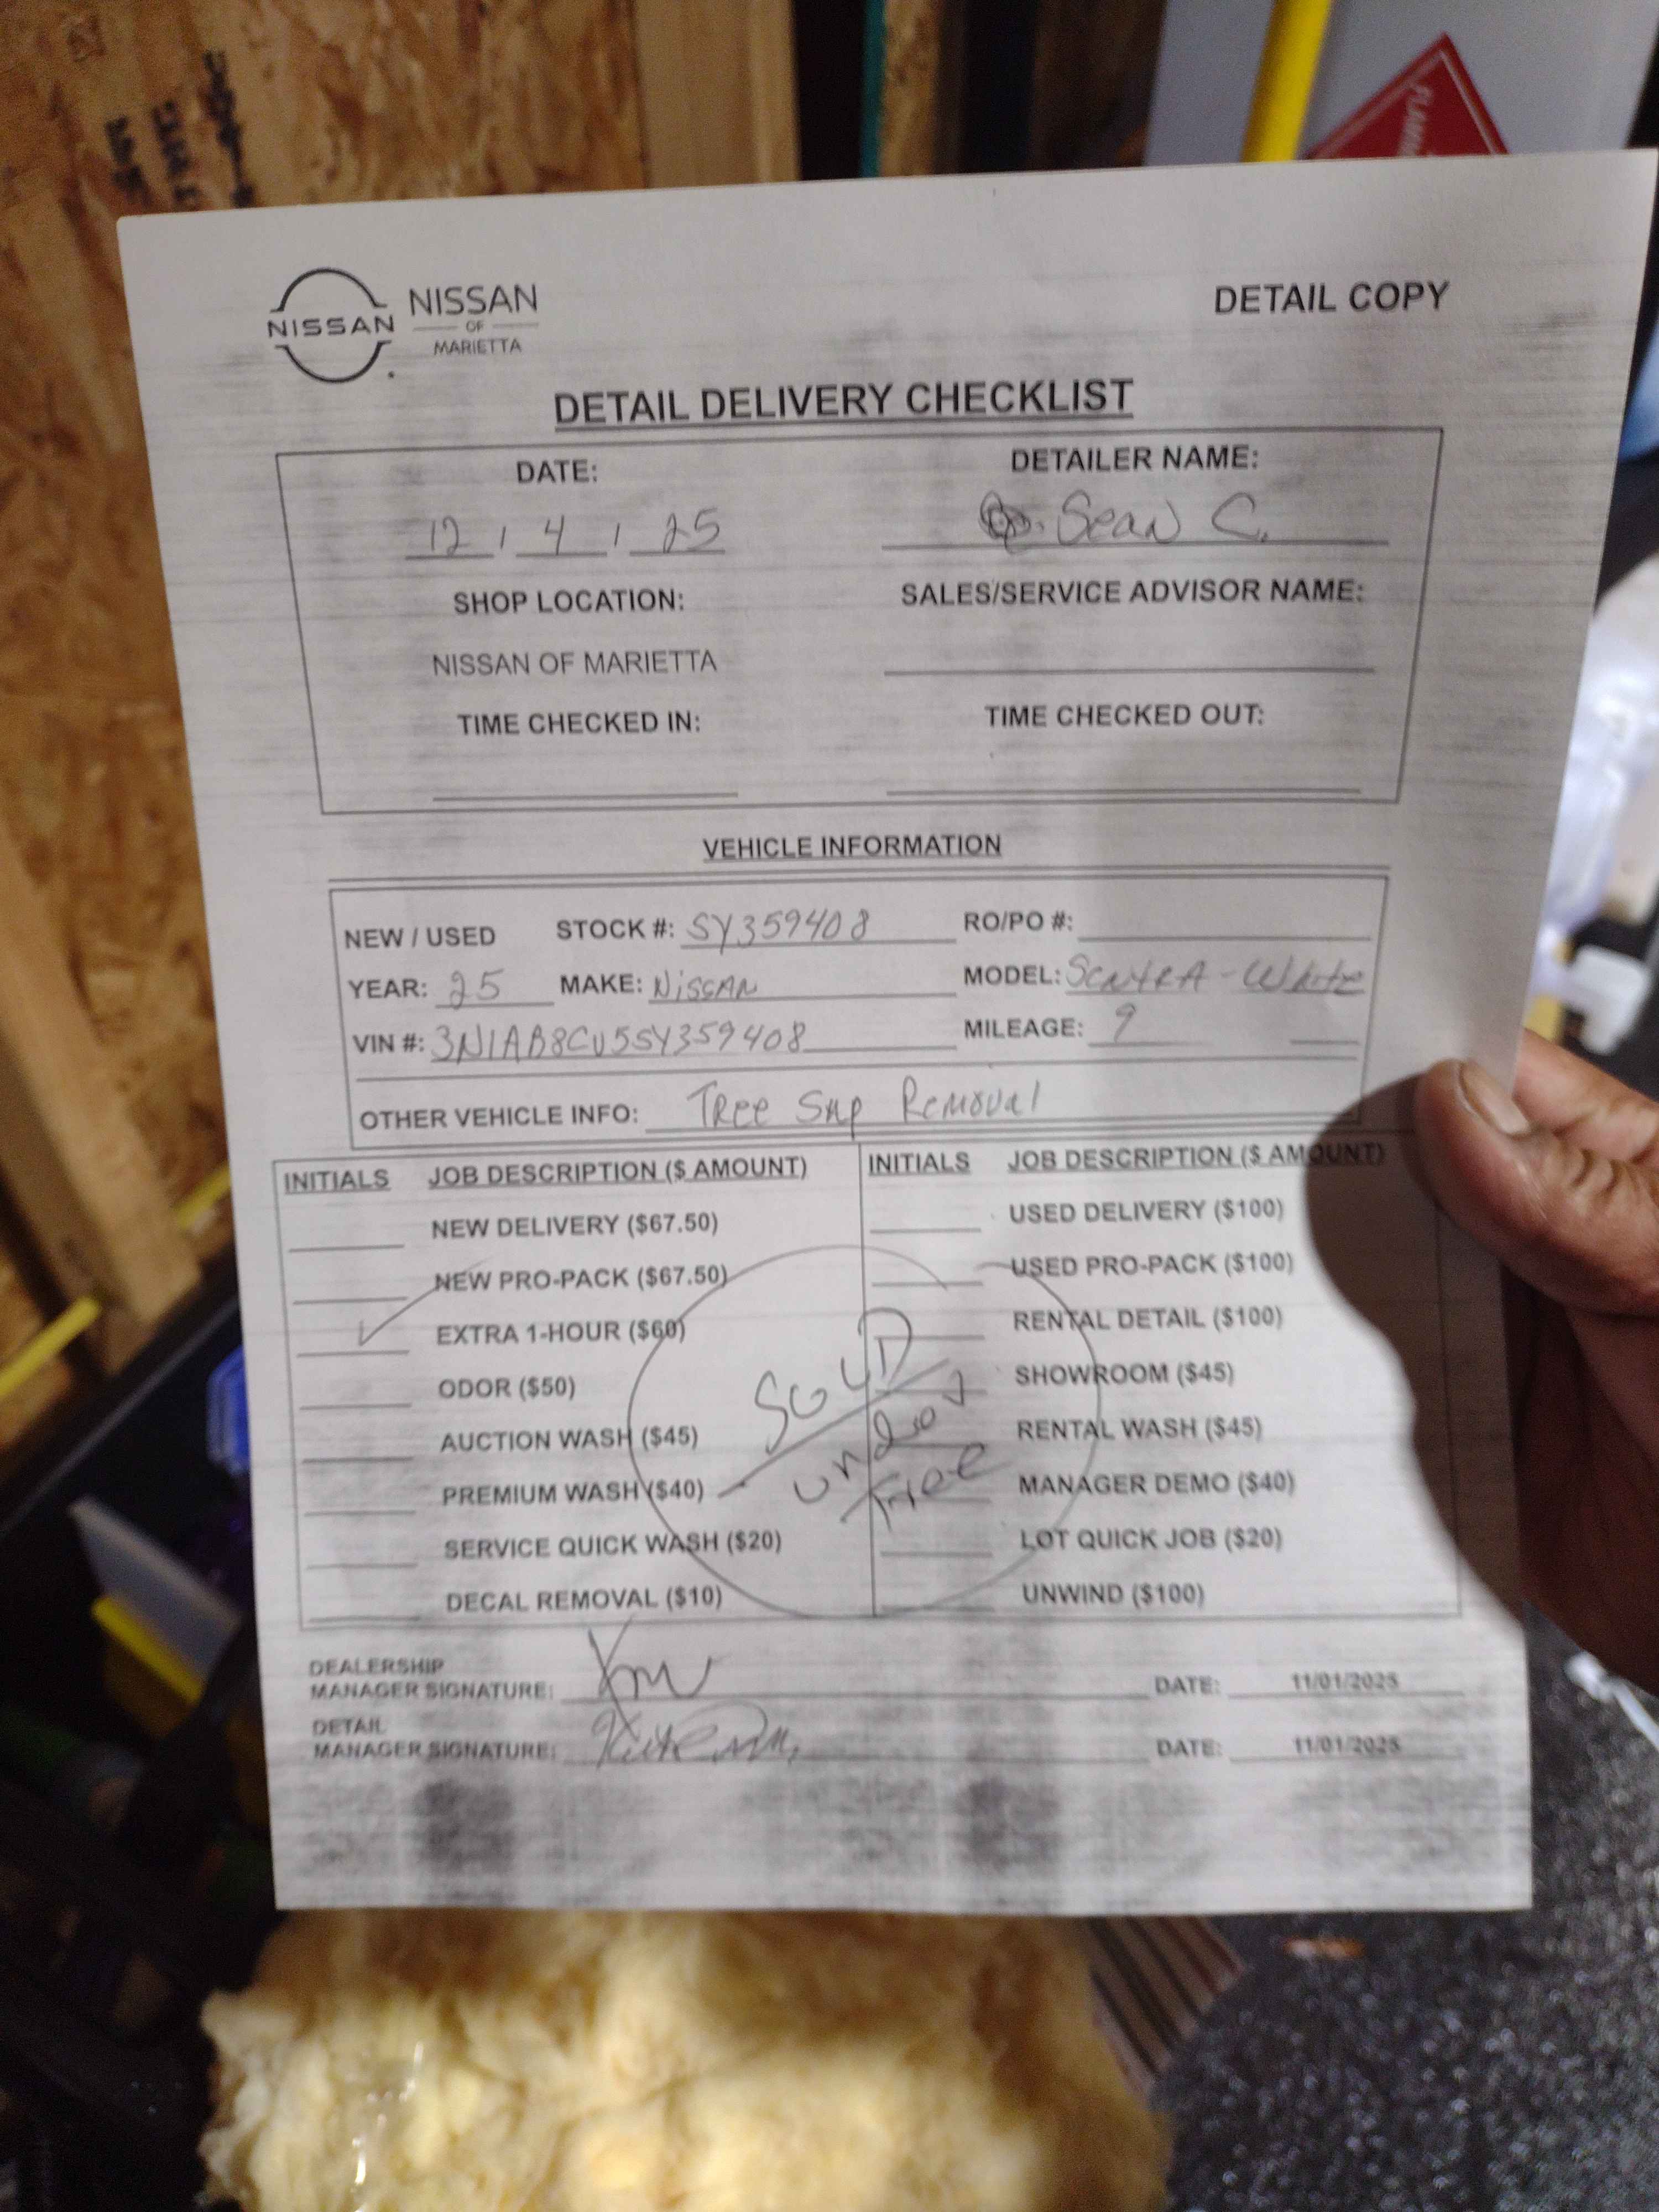 FLAMM
NISSAN
NISSAN
OF
MARIETTA
DETAIL COPY
DETAIL DELIVERY CHECKLIST
DATE:
12 / 4 / 25
DETAILER NAME:
Sean C.
SHOP LOCATION:
NISSAN OF MARIETTA
SALES/SERVICE ADVISOR NAME:
TIME CHECKED IN:
TIME CHECKED OUT:
VEHICLE INFORMATION
NEW / USED STOCK #: SY359408 RO/PO #:
YEAR: 25 MAKE: NISSAN MODEL: SENTRA - White
VIN #: 3N1AB8CV5SY359408 MILEAGE: 9
OTHER VEHICLE INFO: Tree SAP Removal
INITIALS JOB DESCRIPTION ($ AMOUNT)
NEW DELIVERY ($67.50)
NEW PRO-PACK ($67.50)
✓ EXTRA 1-HOUR ($60)
ODOR ($50)
AUCTION WASH ($45)
PREMIUM WASH ($40)
SERVICE QUICK WASH ($20)
DECAL REMOVAL ($10)
INITIALS JOB DESCRIPTION ($ AMOUNT)
USED DELIVERY ($100)
USED PRO-PACK ($100)
RENTAL DETAIL ($100)
SHOWROOM ($45)
RENTAL WASH ($45)
MANAGER DEMO ($40)
LOT QUICK JOB ($20)
UNWIND ($100)
SOLD
under
tree
DEALERSHIP
MANAGER SIGNATURE: DATE: 11/01/2025
DETAIL
MANAGER SIGNATURE: DATE: 11/01/2025